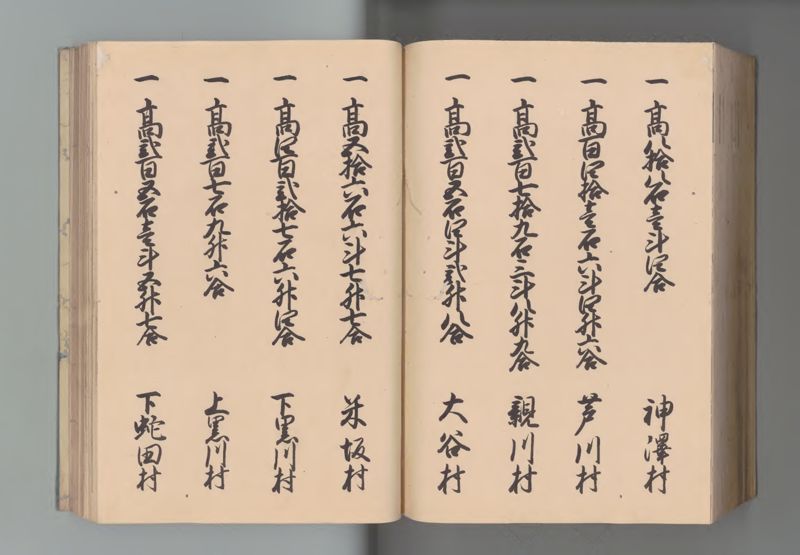 一 高八拾八石壱斗四合 神澤村
一 高百四拾壱石六斗四升六合 芦川村
一 高弐百七拾九石三斗八升九合 親川村
一 高弐百五石四斗弐升八合 大谷村
一 高五拾六石六斗七升七合 米坂村
一 高四百弐拾七石六升四合 下黒川村
一 高弐百七石九升六合 上黒川村
一 高弐百五石壱斗五升七合 下蛇田村